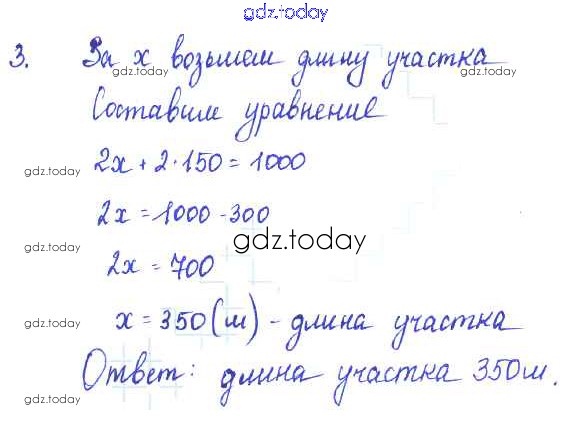 gdz.today
3. За x возьмем длину участка
gdz.today gdz.today
Составим уравнение
2x + 2·150 = 1000
gdz.today
2x = 1000 - 300
gdz.today gdz.today
2x = 700
x = 350 (м) - длина участка
gdz.today gdz.today
Ответ: длина участка 350м.
gdz.today